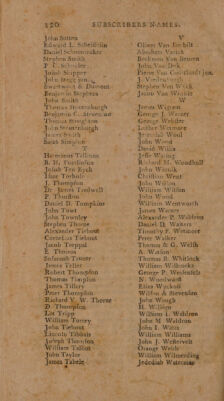 120 SUBSCRIBERS NAMES.
John Sutton
Edward L. Schieffelin
Daniel Schermerhorn
Stephen Smith
P. C. Schuyler
Josiah Skipper
John Staggman
Swartwout & Dumont
Benjamin Stephens
John Smith
Thomas Stoutenburgh
Benjamin C. Stevenson
Thomas Stoughton
John Stoutenburgh
James Smith
Isaac Simpson
T
Harmanus Tallman
B. H. Tomlinson
Josiah Ten Eyck
Illac Torboss
J. Thompson
Dr. James Tredwell
P. Thurston
Daniel D. Tompkins
John Towt
John Townley
Stephen Thorne
Alexander Tiebout
Cornelius Tiebout
Jacob Teepall
E. Thomas
Solomon Townd
James Teller
Robert Thompson
Thomas Timpson
James Tillery
Peter Thompson
Richard V. W. Thorne
D. Thompson
Lot Tripp
William Torrey
John Tiebout
Lincoln Tibbals
Joseph Thornton
William Tallon
John Taylor
James Tabele
V
Oliver Van
Abraham Varick
Beekman Van Beuren
John Van Dyk
Pierre Van Cortlandt jun.
J. Vredenburgh
Stephen Van Wyck
Jacob Van Winkle
W
James Wigram
George J. Warner
George Webster
Luther Wetmore
Jeremiah Wool
John Wood
David Willis
Jesse Waring
Richard M. Woodhull
John Warnik
Christian West
John Wilson
William Wilson
John Wood
William Wentworth
James Warner
Alexander P. Waldron
Daniel D. Walters
Timothy F. Wetmore
Peter Walker
Thomas & G. Welsh
A. Watson
Thomas R. Whitlock
William Willcocks
George P. Weslenfels
N. Woodward
Elias Wycoff
Wilson & Stevenson
John Waugh
H. Wilson
William L. Waldron
John M. Waldron
John I. Waits
William Williams
John J. Westervelt
Orange Webb
William Wilmerding
Jedediah Waterman